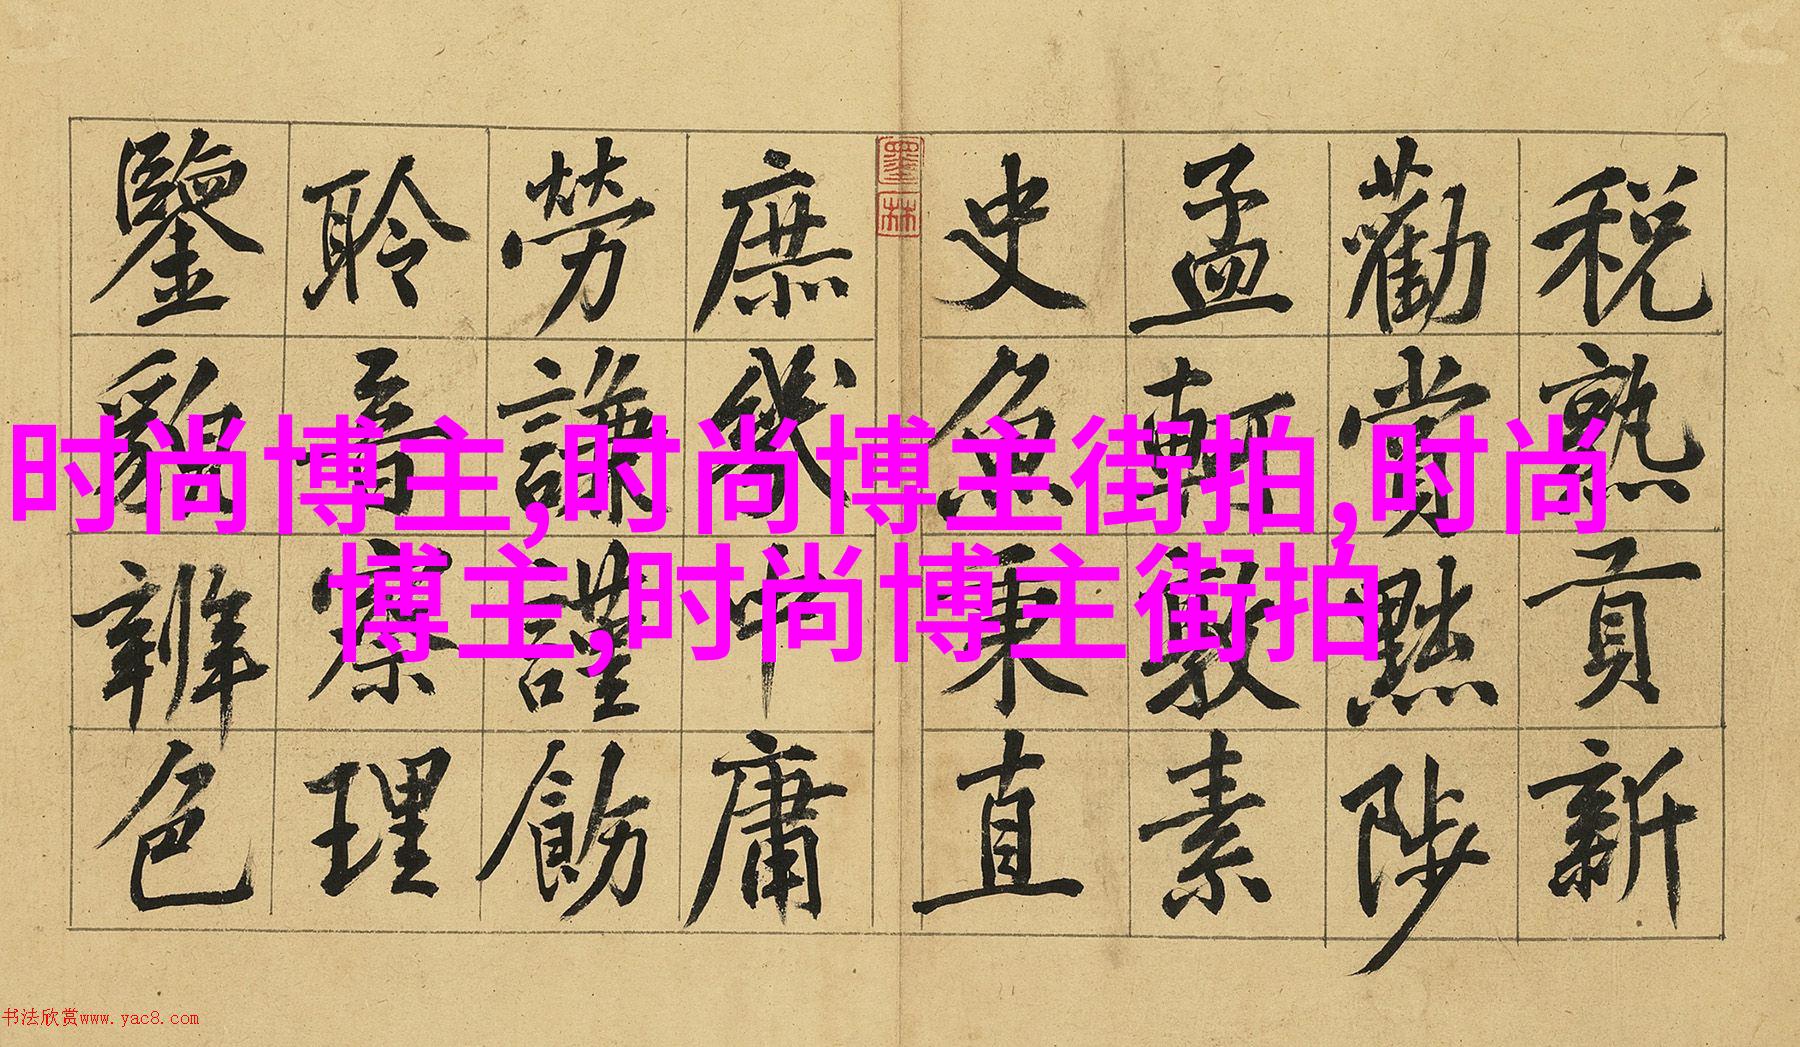 税熟貢新
勸賞黜陟
孟軻敦素
史魚秉直
墨林
庶幾中庸
勞謙謹飭
聆音察理
鑒貌辨色
时尚博主,时尚博主街拍,时尚
博主,时尚博主街拍
书法欣赏www.yac8.com